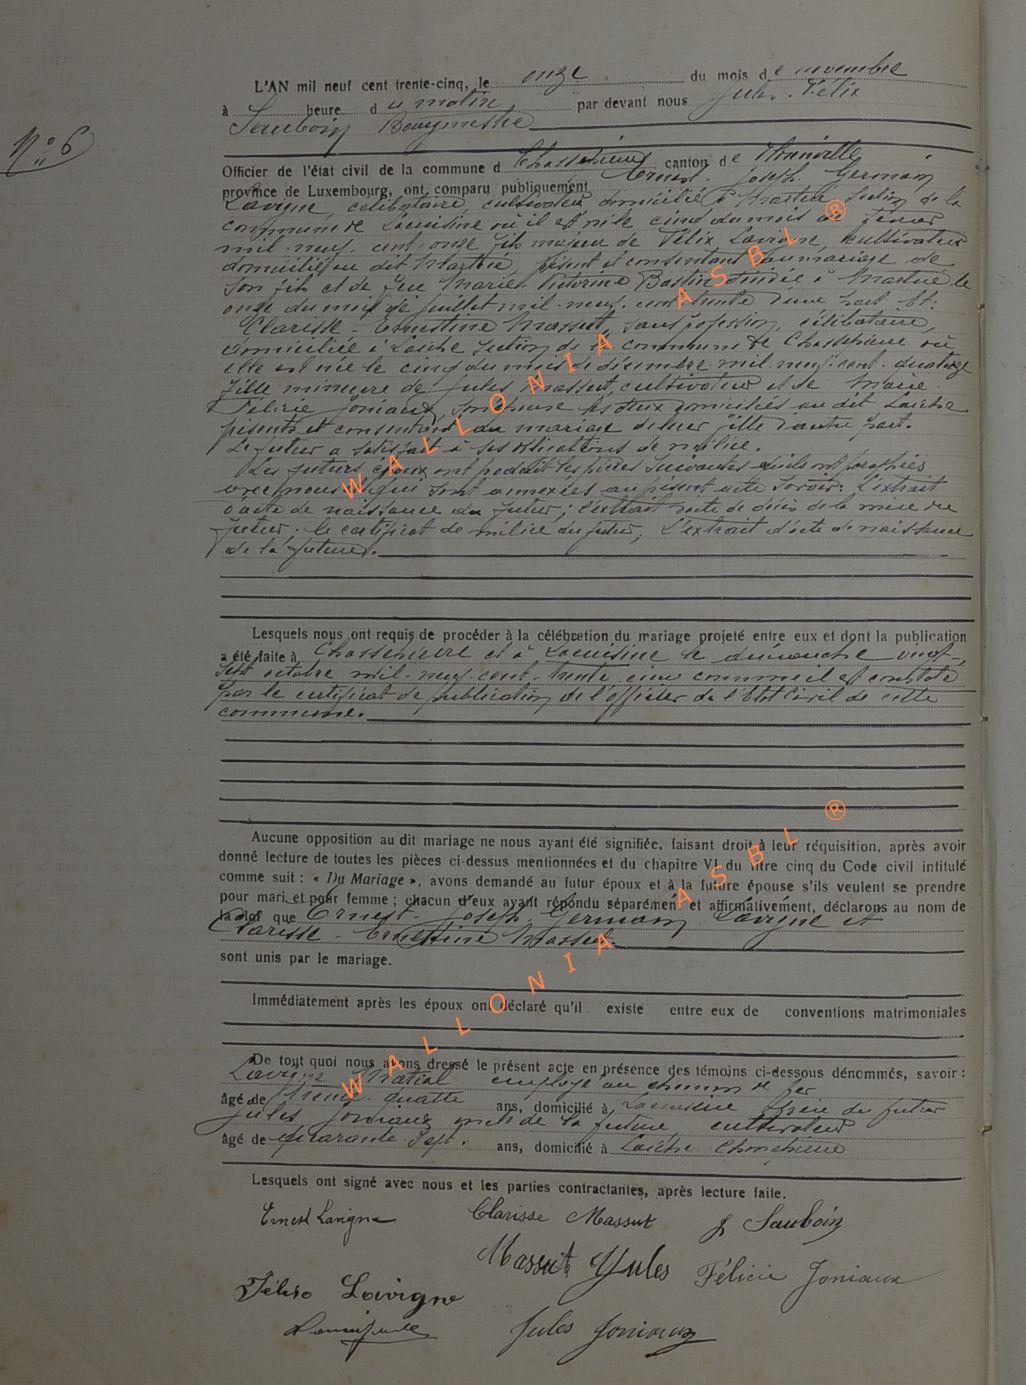 N° 6
L'AN mil neuf cent trente-cinq, le onze du mois de novembre
à heure du matin, par devant nous Jules Félix
Sauboin Bourgmestre
Officier de l'état civil de la commune de Chassepierre canton de
province de Luxembourg, ont comparu publiquement Ernest Joseph Germain
Lavigne, célibataire, cultivateur domicilié à Martué Section de la
commune de Lacuisine où il est né le cinq du mois de février
mil neuf cent onze fils majeur de Félix Lavigne, cultivateur
domicilié au dit Martué, présent et consentant au mariage de
son fils et de feu Marie Victorine Bastin décédée à Martué le
onze du mois de juillet mil neuf cent trente d'une part Et:
Clarisse - Ernestine Massut, sans profession, célibataire,
domiciliée à Laiche Section de la commune de Chassepierre où
elle est née le cinq du mois de décembre mil neuf cent quatorze
fille mineure de Jules Massut, cultivateur et de Marie
Félicie Joniaux, son épouse les deux domiciliés au dit Laiche
présents et consentants au mariage de leur fille d'autre part.
Le futur a satisfait à ses obligations de milice.
Les futurs époux ont produit les pièces suivantes qu'ils ont paraphées
avec nous et qui sont annexées au présent acte savoir: L'extrait
d'acte de naissance du futur; l'extrait d'acte de décès de la mère du
futur; le certificat de milice du futur; L'extrait d'acte de naissance
de la future.
Lesquels nous ont requis de procéder à la célébration du mariage projeté entre eux et dont la publication
a été faite à Chassepierre et à Lacuisine le dimanche vingt-
sept octobre mil neuf cent trente cinq comme il est constaté
par le certificat de publication de l'Officier de l'Etat Civil de cette
commune.
Aucune opposition au dit mariage ne nous ayant été signifiée, faisant droit à leur réquisition, après avoir
donné lecture de toutes les pièces ci-dessus mentionnées et du chapitre VI du titre cinq du Code civil intitulé
comme suit : « Du Mariage », avons demandé au futur époux et à la future épouse s'ils veulent se prendre
pour mari et pour femme ; chacun d'eux ayant répondu séparément et affirmativement, déclarons au nom de
la loi que Ernest Joseph Germain Lavigne et
Clarisse - Ernestine Massut
sont unis par le mariage.
Immédiatement après les époux ont déclaré qu'il existe entre eux de conventions matrimoniales
De tout quoi nous avons dressé le présent acte en présence des témoins ci-dessous dénommés, savoir :
Lavigne Martial employé au chemin de fer
âgé de trente quatre ans, domicilié à Lacuisine frère du futur
Jules Joniaux oncle de la future cultivateur
âgé de quarante sept ans, domicilié à Laiche Chassepierre
Lesquels ont signé avec nous et les parties contractantes, après lecture faite.
Ernest Lavigne Clarisse Massut J Sauboin
Massut Jules Félicie Joniaux
Félix Lavigne
Jules Joniaux
WALLONIA ASBL ®
WALLONIA ASBL ®